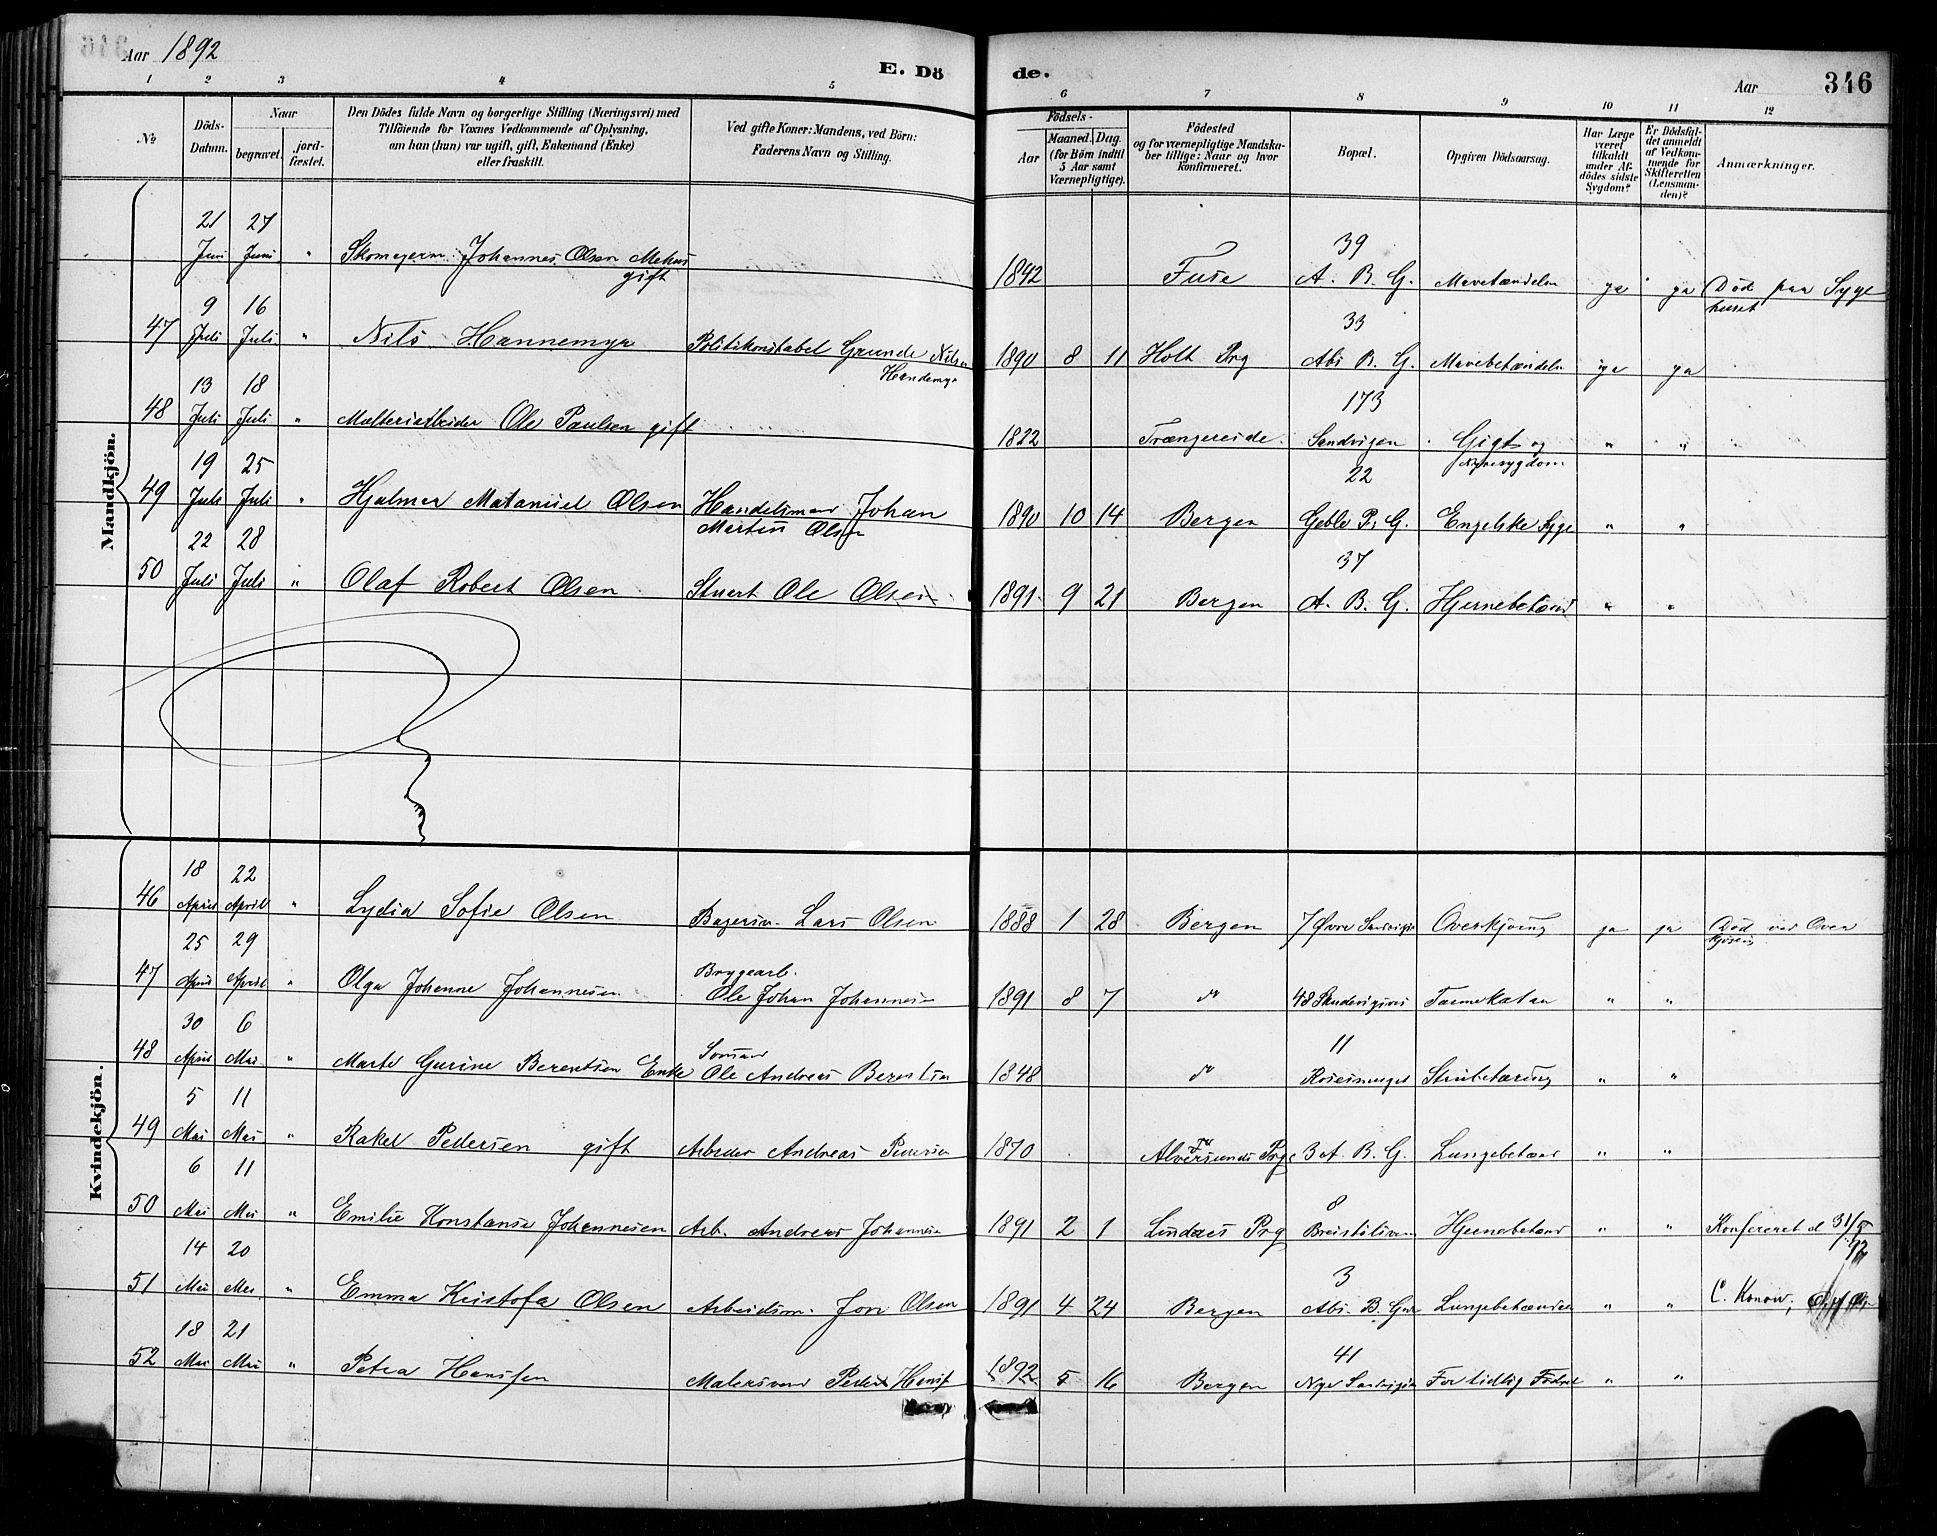 Aar 1892
E. Dö
de.
Aar
346
1 2 3 4 5 6 7 8 9 10 11 12
No
Döds-
Datum.
Naar
begravet.
jord-
fæstet.
Den Dödes fulde Navn og borgerlige Stilling (Næringsvei) med
Tilföiende for Voxnes Vedkommende af Oplysning,
om han (hun) var ugift, gift, Enkemand (Enke)
eller fraskilt.
Ved gifte Koner: Mandens, ved Börn:
Faderens Navn og Stilling.
Födsels-
Aar
Maaned. Dag.
(for Börn indtil
5 Aar samt
Værnepligtige).
Födested
og for værnepligtige Mandska-
ber tillige: Naar og hvor
Konfirmeret.
Bopæl.
Opgiven Dödsaarsag.
Har Læge
været
tilkaldt
under Af-
dödes sidste
Sygdom?
Er Dödsfal-
det anmeldt
af Vedkom-
mende for
Skifteretten
(Lensman-
den)?
Anmærkninger.
Mandkjön.
21 27 39
Juni Juni " Skomagerm. Johannes Olsen Mehus 1842 Fuse A. B. G. Mavebetændelse ja ja Död paa Syge
gift huset
9 16 33
47 Juli Juli " Nils Hannemyr Politikonstabel Grunde Nilsen 1890 8 11 Holt Prg Abs B. G. Mavebetændelse ja ja
Handemyr
13 18 173
48 Juli Juli " Malteriarbeider Ole Paulsen gift 1822 Trængereide Sandvigen Gigt og " "
Nyresygdom
19 25 22
49 Juli Juli " Hjalmar Matanuel Olsen Handelsmand Johan 1890 10 14 Bergen Geble P. G. Engelske Syge " "
Martin Olsen
22 28 37
50 Juli Juli " Olaf Robert Olsen Stuert Ole Olsen 1891 9 21 Bergen A. B. G. Hjernebetænd " "
Kvindekjön.
18 22
46 April April " Lydia Sofie Olsen Bagersv. Lars Olsen 1888 1 28 Bergen 7 Øvre Sandvigen Overkjöring ja ja Död ved Over
kjöring
25 29
47 April April " Olga Johanne Johannesen Brygearb. Ole Johan Johannesen 1891 8 7 do 48 Sandvigsvei Tarmekatar " "
30 6 11
48 April Mai " Marte Gurine Berentsen Enke Sömand Ole Andreas Berentsen 1848 do Rosesmuget Strubetæring " "
5 11
49 Mai Mai " Rakel Pedersen gift Arbeider Andreas Pedersen 1870 Alversunds Prg 3 A. B. G. Lungebetænd " "
6 11 8
50 Mai Mai " Emilie Konstanse Johannesen Arb. Andreas Johannesen 1891 2 1 Lindaas Prg Breistölsven Hjernebetænd " " Konfereret d 31/5
92
14 20 3
51 Mai Mai " Emma Kristofa Olsen Arbeidsm. Jon Olsen 1891 4 24 Bergen Abs. B. Gade Lungebetændel " " C. Konow,
18 21 41
52 Mai Mai " Petra Hansen Malersvend Peder Hansen 1892 5 16 Bergen Nye Sandvigsv For tidlig Födsel " "